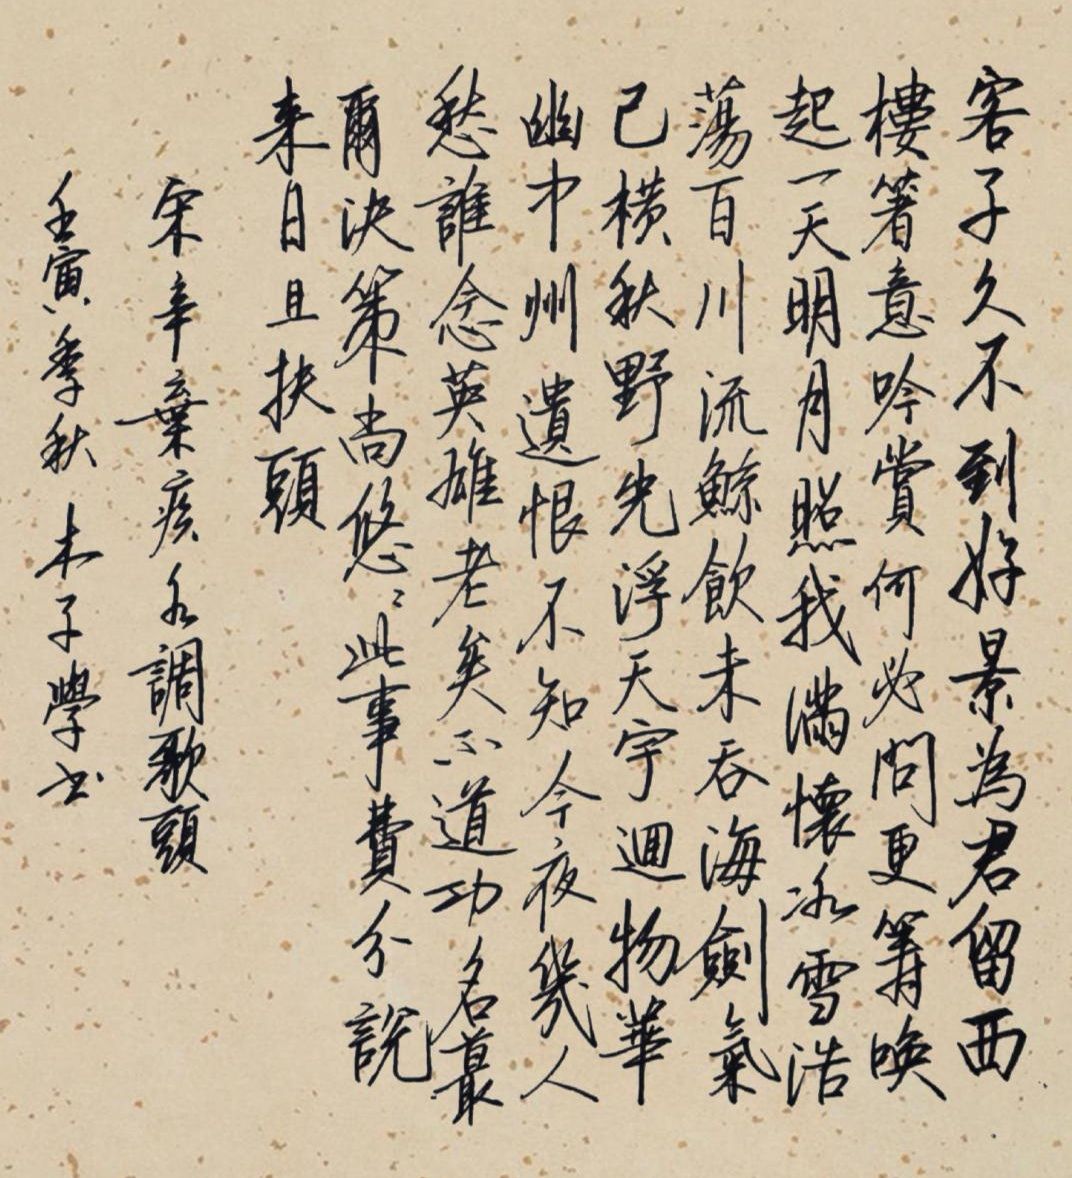 客子久不到好景為君留西
樓箸意吟賞何必問更籌喚
起一天明月照我滿懷冰雪浩
蕩百川流鯨飲未吞海劍氣
已橫秋野光浮天宇迴物華
幽中州遺恨不知今夜幾人
愁誰念英雄老矣不道功名蕞
爾決策尚悠〻此事費分說
来日且扶頭
宋辛棄疾水調歌頭
壬寅季秋 木子學书